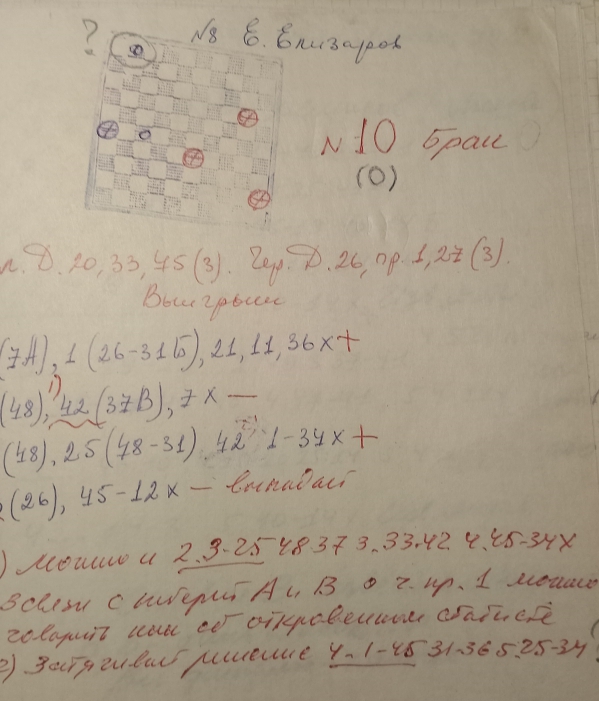 ?
№8 Е. Елизаров
№10 Брак
(0)
л. Д. 20, 33, 45 (3). Чер. Д. 26, пр. 1, 27 (3).
Выигрыш
(7А), 1 (26-31Б), 21, 11, 36х+
1)
(48), 42 (37В), 7х —
(48), 25 (48-31) 42 1-34х+
(26), 45-12х — выпадает
) можно и 2.3-25 48-37 3.33-42 4.45-34х
В связи с А и В о ч. пр. 1 можно
говорить как об откровенном статисте
2) Затягивает решение 4.1-45 31-36 5.25-34